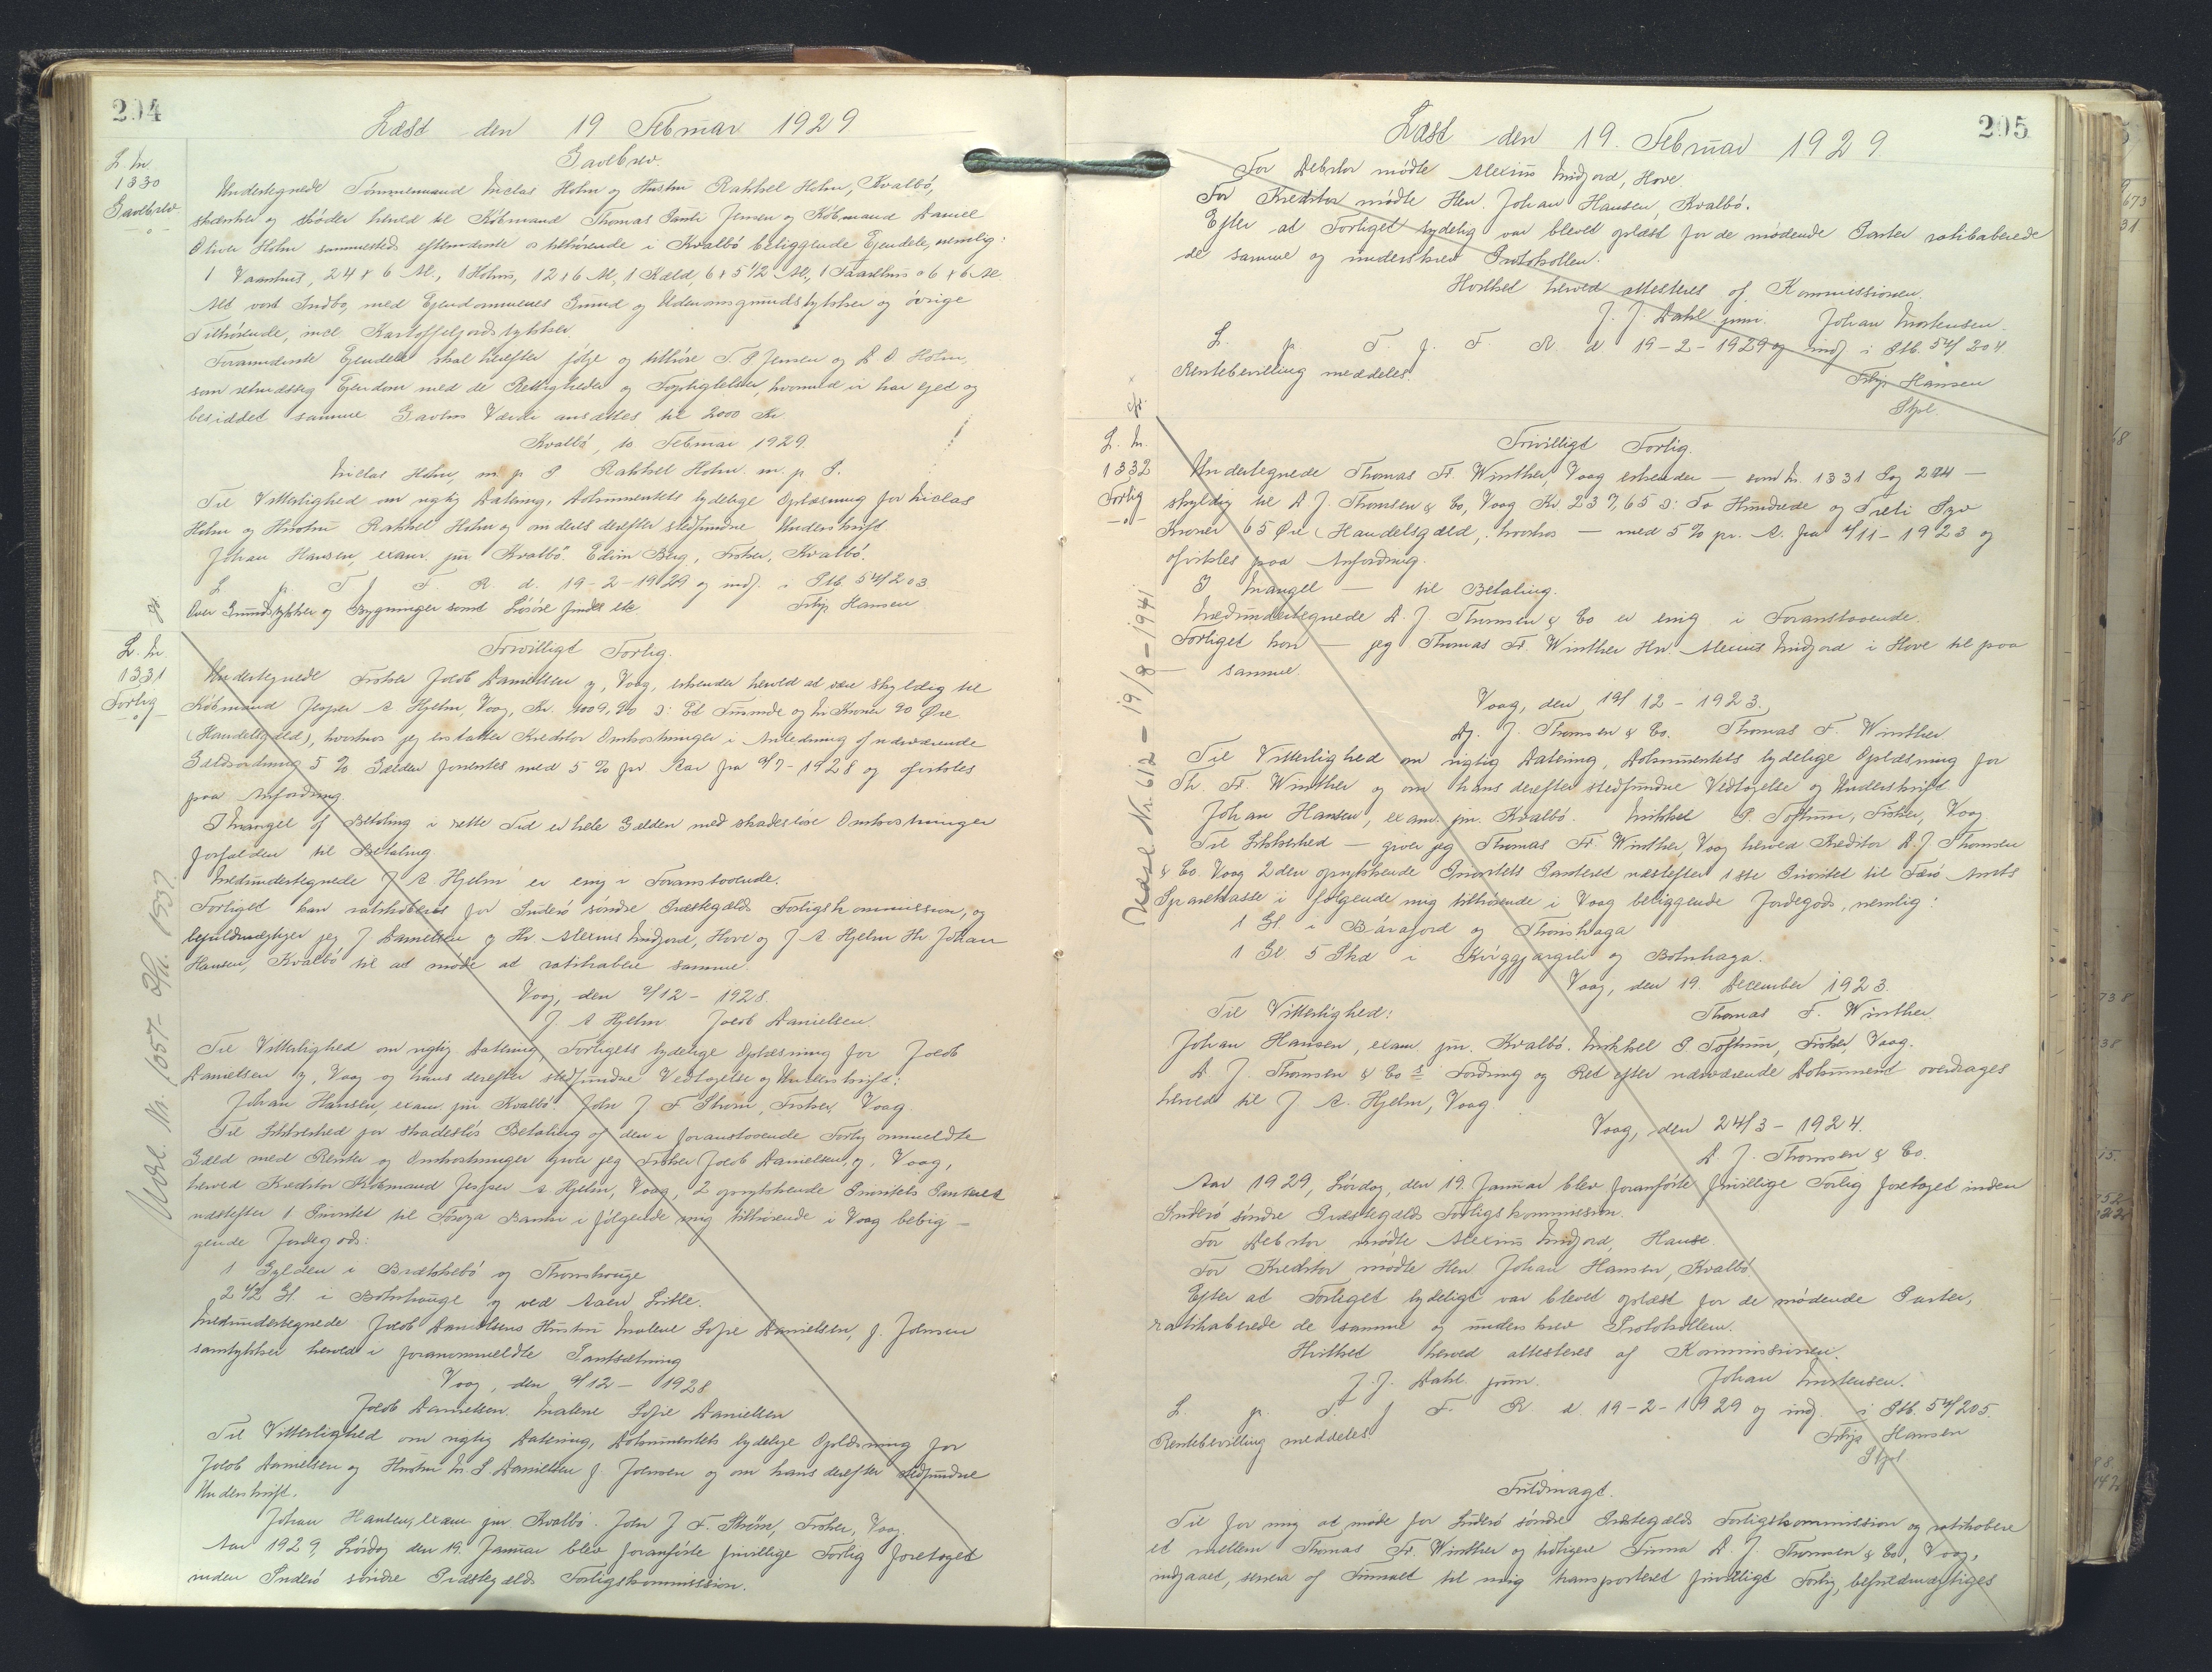 204
Læst den 19 Februar 1929
L. Nr
1330
Gavebrev
Gavebrev.
Undertegnede Tømmermand Niclas Holm og Hustru Rakkel Holm, Kvalbø,
skænker og skøder herved til Købmand Thomas Jensen og Købmand Daniel
Oliver Holm sammesteds eftermeldte os tilhørende i Kvalbø beliggende Ejendele, nemlig:
1 Vaanhus, 24 x 6 Al., 1 12 x 6 Al, 1 Kæld, 6 x 5 1/2 Al., 1 6 x 6 Al.
Alt vort Indbo, med Ejendommenes Grund og og øvrige
Tilhørende, incl Kartoffeljordstykker.
Foranmeldte Ejendele skal herefter følge og tilhøre T. P Jensen og D O Holm,
som retmæssig Ejendom med de Rettigheder og Forpligtelser, hvormed vi har ejed og
besiddet samme. Gavens Værdi ansættes til 2000 Kr.
Kvalbø, 10 Februar 1929.
Niclas Holm, m. p. P. Rakkel Holm. m. p. P.
Til Vitterlighed om rigtig Datering, Dokumentets lydelige Oplæsning for Niclas
Holm og Hustru Rakkel Holm og om deres derefter stedfundne Underskrift
Johan Hansen, exam. jur. Kvalbø. Edin Berg, Fisker, Kvalbø.
L p. T. f F. R. d. 19-2-1929 og indf. i Ptb. 54/203
Over Grundstykker og Bygninger samt Løsøre findes ikke Filip Hansen
L. Nr
1331
Forlig
Frivilligt Forlig.
Undertegnede Fisker Jacob Danielsen y, Vaag, erkender herved at være skyldig til
Købmand Jesper A Hjelm, Vaag, Kr. 1009,90 ɔ: Et Tusinde og Ni Kroner 90 Øre
(Handelsgæld), hvorhos jeg erstatter Kreditor Omkostninger i Anledning af nærværende
Gældsordning 5 % Gælden forrentes med 5 % pr. Aar fra 9/7-1928 og afvikles
paa Anfordring.
I Mangel af Betaling i rette Tid er hele Gælden med skadesløse Omkostninger
forfalden til Betaling
Medundertegnede J A Hjelm er enig i Foranstaaende.
Forliget kan ratihaberes for Suderø søndre Præstegælds Forligskommission, og
befuldmægtiger jeg, J Danielsen y Hr Alexius Midjord, Hove og J A Hjelm Hr Johan
Hansen, Kvalbø til at møde at ratihabere samme.
Vaag, den 9/12 - 1928.
J. A Hjelm Jacob Danielsen.
Til Vitterlighed om rigtig Datering, Forligets lydelige Oplæsning for Jacob
Danielsen y, Vaag og hans derefter stedfundne Vedtagelse og Underskrift:
Johan Hansen, exam. jur Kvalbø. John J F Strøm, Fisker, Vaag.
Til Sikkerhed for skadesløs Betaling af den i foranstaaende Forlig ommeldte
Gæld med Renter og Omkostninger giver jeg Fisker Jacob Danielsen, y, Vaag,
herved Kreditor Købmand Jesper A Hjelm, Vaag, 2 oprykkende Prioritets Panteret
næstefter 1 Prioritet til Føroya Banki i følgende mig tilhørende i Vaag belig-
gende Jordegods:
1 Gylden i Brækkebø og Thomshauge
2 1/2 Gl. i Botnhauge og ved Aaen Lille.
Medundertegnede Jacob Danielsens Hustru Malene Sofie Danielsen, f. Johnsen
samtykker herved i foranommeldte Pantsætning
Vaag, den 9/12 - 1928
Jacob Danielsen. Malene Sofie Danielsen
Til Vitterlighed om rigtig Datering, Dokumentets lydelige Oplæsning for
Jacob Danielsen og Hustru M. S Danielsen f. Johnsen og om hans derefter stedfundne
Underskrift.
Johan Hansen, exam jur Kvalbø. John J F. Strøm, Fisker, Vaag.
Aar 1929, Lørdag den 19. Januar blev foranførte frivillige Forlig foretaget
inden Suderø søndre Præstegælds Forligskommission.
Udsl. Nr. 1057- 1937.
205
Læst den 19. Februar 1929.
For Debitor mødte Alexius Midjord, Hove.
For Kreditor mødte Herr. Johan Hansen, Kvalbø.
Efter at Forliget tydelig var blevet oplæst for de mødende Parter ratihaberede
de samme og underskrev Protokollen.
Hvilket herved attesteres af Kommissionen.
J. J. Dahl junr. Johan Mortensen.
L. p. T. f. F. R. d 19-2-1929 og indf i Ptb. 54/204
Rentebevilling meddeles. Filip Hansen
Stpl.
L. Nr.
1332
Forlig
Frivilligt Forlig.
Undertegnede Thomas Fr. Winther, Vaag erkender — som Nr. 1331 Pag 204 —
skyldig til D J. Thomsen & Co, Vaag Kr. 237,65 ɔ: To Hundrede og Treti Syv
Kroner 65 Øre (Handelsgæld, hvorhos — med 5 % pr. A. fra 4/11-1923 og
afvikles paa Anfordring.
I Mangel — til Betaling.
Medundertegnede D. J Thomsen & Co er enig i Foranstaaende.
Forliget kan — jeg Thomas Fr. Winther Hr. Alexius Midjord i Hove til paa
samme.
Vaag, den 19/12 - 1923.
D. J. Thomsen & Co. Thomas F. Winther
Til Vitterlighed om rigtig Datering, Dokumentets lydelige Oplæsning for
Th. Fr. Winther og om hans derefter stedfundne Vedtagelse og Underskrift
Johan Hansen, exam. jur. Kvalbø. Mikkel P. Toftum, Fisker, Vaag
Til Sikkerhed — giver jeg Thomas Fr Winther, Vaag herved Kreditor D. J Thomsen
& Co. Vaag 2den oprykkende Prioritets Panteret næstefter 1ste Prioritet til Færø Amts
Sparekasse i følgende mig tilhørende i Vaag beliggende Jordegods, nemlig:
1 Gl. i og Thomshaga
1 Gl. 5 Skd i og Botnhaga.
Vaag, den 19. December 1923.
Til Vitterlighed: Thomas F. Winther.
Johan Hansen, exam. jur. Kvalbø. Mikkel P. Toftum, Fisker, Vaag.
D. J. Thomsen & Co s Fordring og Ret efter nærværende Dokument overdrages
herved til J A. Hjelm, Vaag
Vaag, den 24/3 - 1924.
D. J. Thomsen & Co.
Aar 1929, Lørdag, den 19. Januar blev foranførte frivillige Forlig foretaget inden
Suderø søndre Præstegælds Forligskommission.
For Debitor mødte Alexius Midjord,
For Kreditor mødte Herr Johan Hansen, Kvalbø
Efter at Forliget lydeligt var blevet oplæst for de mødende Parter,
ratihaberede de samme og underskrev Protokollen.
Hvilket herved attesteres af Kommissionen.
J. J. Dahl junr. Johan Mortensen.
L. p. T. f F. R d. 19-2-1929 og indf. i Ptb. 54/205.
Rentebevilling meddeles. Filip Hansen
Stpl.
Fuldmagt.
Til for mig at møde for Suderø søndre Præstegælds Forligskommission og ratihabere
et mellem Thomas Fr. Winther og tidligere Firma D. J. Thomsen & Co, Vaag,
indgaaet, senere af Firmaet til mig transporteret frivilligt Forlig, befuldmægtiges
Udsl Nr. 612 - 19/8-1941